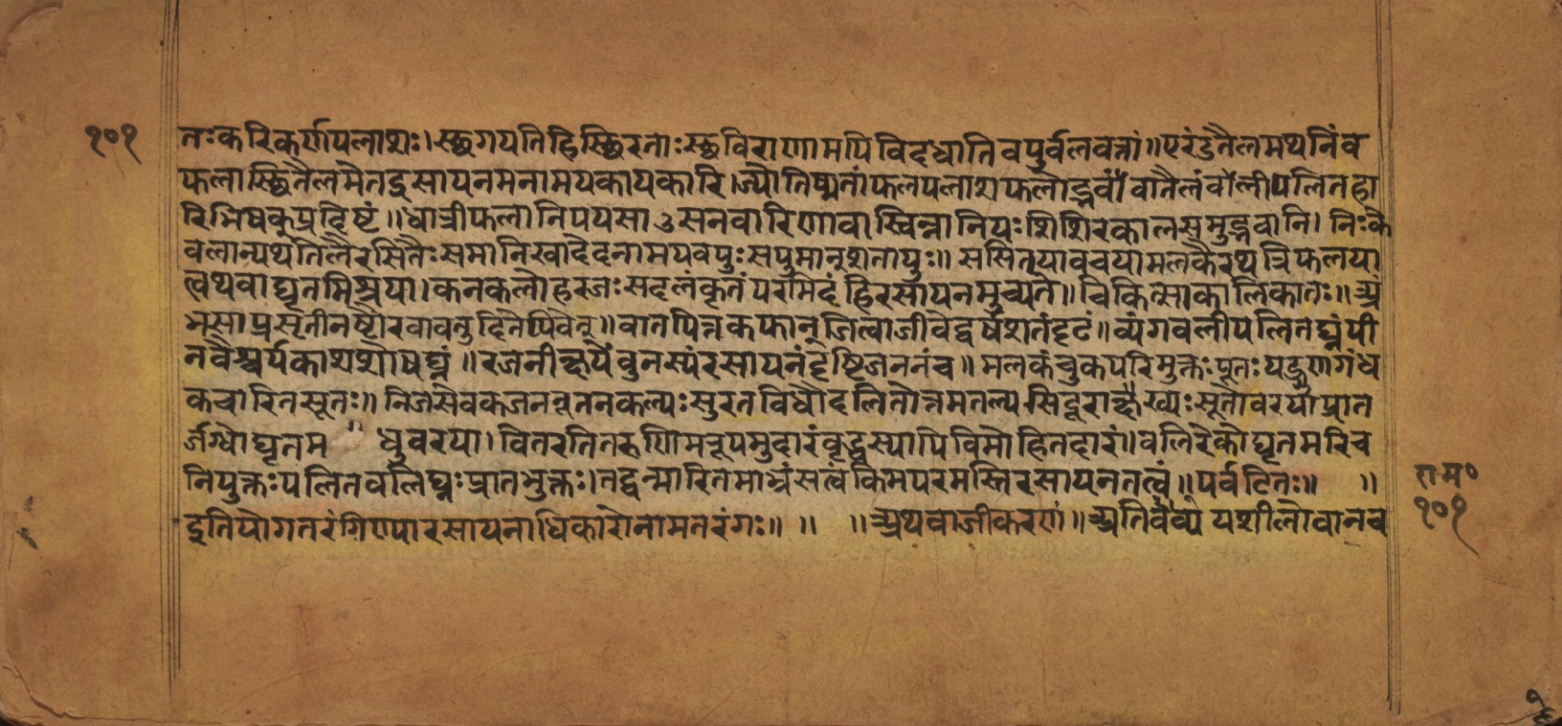 १०१
तः करिकर्णपलाशः। स्थगयति हि स्थिरतोः स्थविराणामपि विदधाति वपुर्बलवत्तां॥ एरंडतैलमथ निंब
फलास्थितैलमेतद्रसायनमनामयकायकारि। ज्योतिष्मतीफलपलाशफलोद्भवं वा तैलं वलीपलितहा
रि भिषक्प्रदिष्टं॥ धात्रीफलानि पयसाऽसनवारिणा वा स्विन्नानि यः शिशिरकालसमुद्भवानि। निःके
वलान्यथ तिलैरसितैः समानि खादेदनामयवपुः स पुमान् शतायुः॥ ससितया वचयामलकैरथ त्रिफलया
त्वथवा घृतमिश्रया। कनकलोहरजः सदलंकृतं परमिदं हि रसायनमुच्यते॥ चिकित्साकालिकातः॥ अं
भसा प्रसृतीनष्टौ रवावनुदिते पिबेत्॥ वातपित्तकफान् जित्वा जीवेद्वर्षशतं दृढं॥ व्यंगवलीपलितघ्नं पी
नवैस्वर्यकाशशोषघ्नं॥ रजनीक्षयेंबुनस्यं रसायनं दृष्टिजननं च॥ मलकंचुकपरिमुक्तः पूतः षड्गुणगंध
कचारितसूतः॥ निजसेवकजननूतनकल्पः सुरतविधौ दलितोन्नमतल्प सिंदूराख्यः सूतो वरया प्रात
र्जग्धो घृतम धुवरया। वितरति तरुणिमरूपमुदारं वृद्धस्यापि विमोहितदारं॥ बलिरेको घृतमरिच
नियुक्तः पलितवलिघ्नः प्रातभुक्तः। तद्वन्मारितमाभ्रं सत्वं किमपरमस्ति रसायनतत्वं॥ पर्वटितः॥ ॥
इति योगतरंगिण्या रसायनाधिकारो नाम तरंगः॥ ॥ ॥ अथ वाजीकरणं॥ अतिव्यवायशीलो वा न च
राम०
१०१